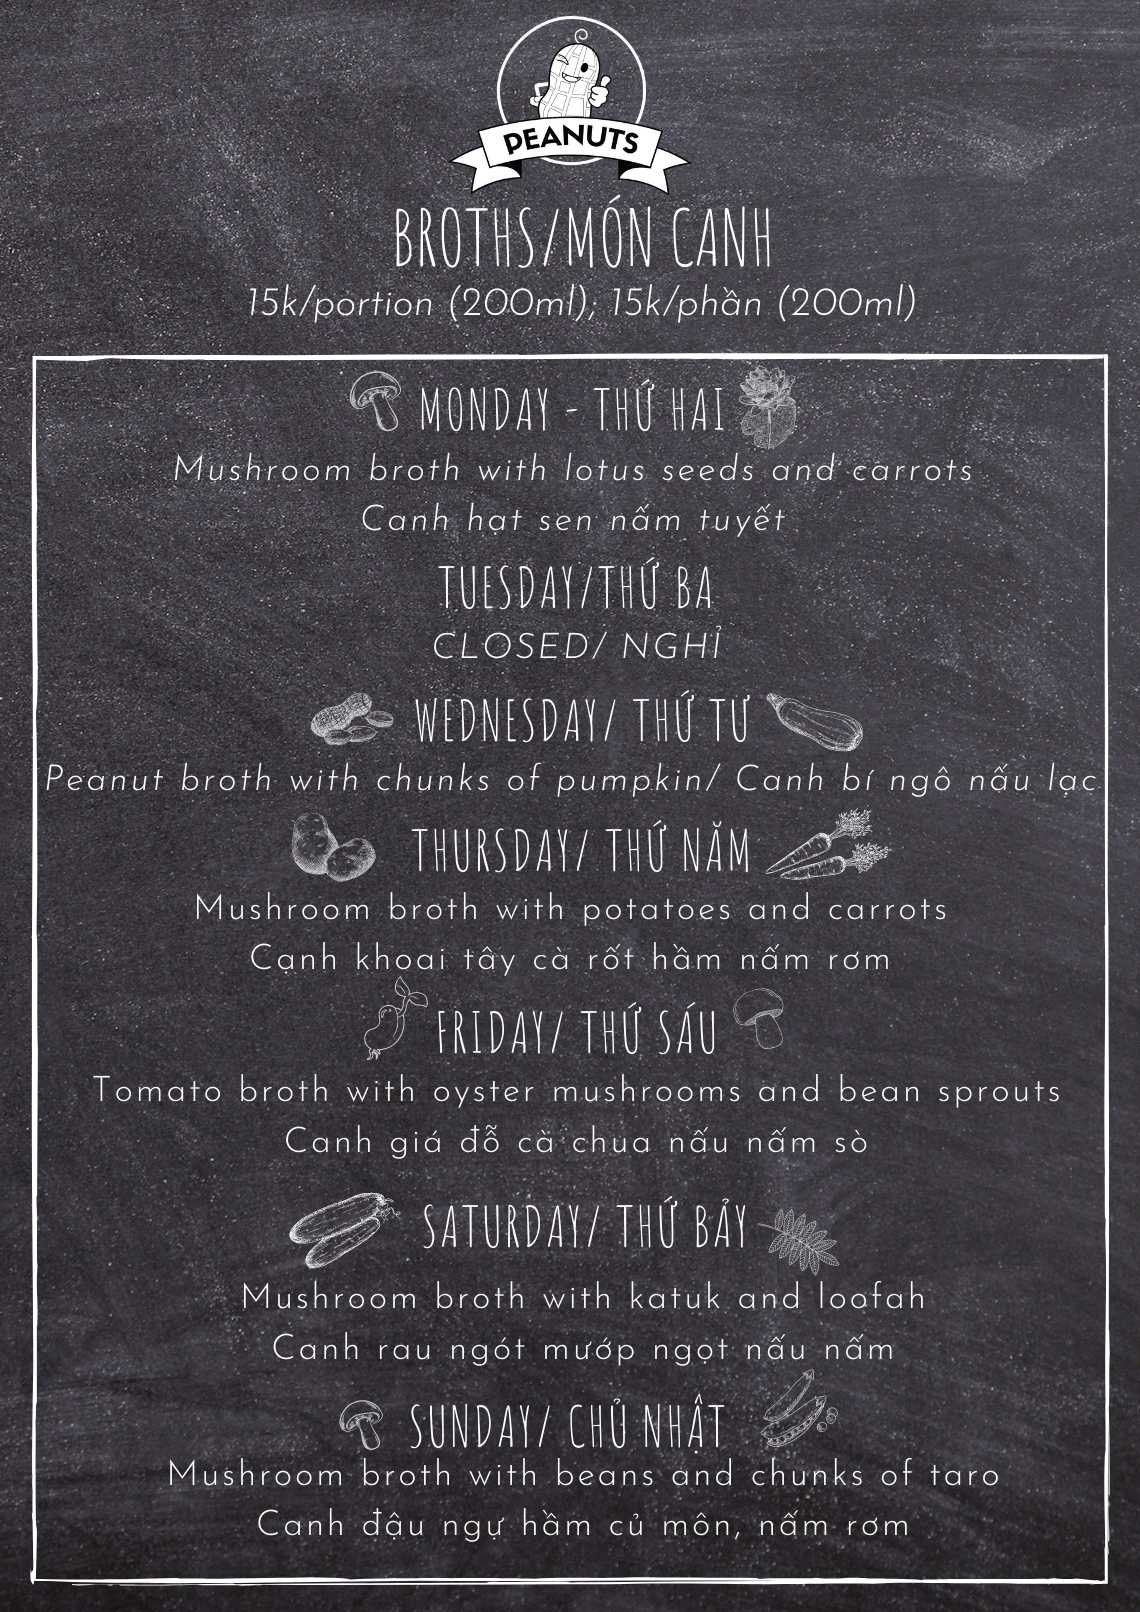 PEANUTS
BROTHS/MÓN CANH
15k/portion (200ml); 15k/phần (200ml)
MONDAY - THỨ HAI
Mushroom broth with lotus seeds and carrots
Canh hạt sen nấm tuyết
TUESDAY/THỨ BA
CLOSED/ NGHỈ
WEDNESDAY/ THỨ TƯ
Peanut broth with chunks of pumpkin/ Canh bí ngô nấu lạc
THURSDAY/ THỨ NĂM
Mushroom broth with potatoes and carrots
Canh khoai tây cà rốt hầm nấm rơm
FRIDAY/ THỨ SÁU
Tomato broth with oyster mushrooms and bean sprouts
Canh giá đỗ cà chua nấu nấm sò
SATURDAY/ THỨ BẢY
Mushroom broth with katuk and loofah
Canh rau ngót mướp ngọt nấu nấm
SUNDAY/ CHỦ NHẬT
Mushroom broth with beans and chunks of taro
Canh đậu ngự hầm củ môn, nấm rơm